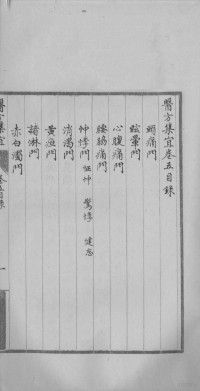 醫方集宜卷五目錄
頭痛門
眩暈門
心腹痛門
腰脇痛門
怔忡門 怔忡 驚悸 健忘
消渴門
黃疸門
諸淋門
赤白濁門
醫方集宜
卷五目錄
一